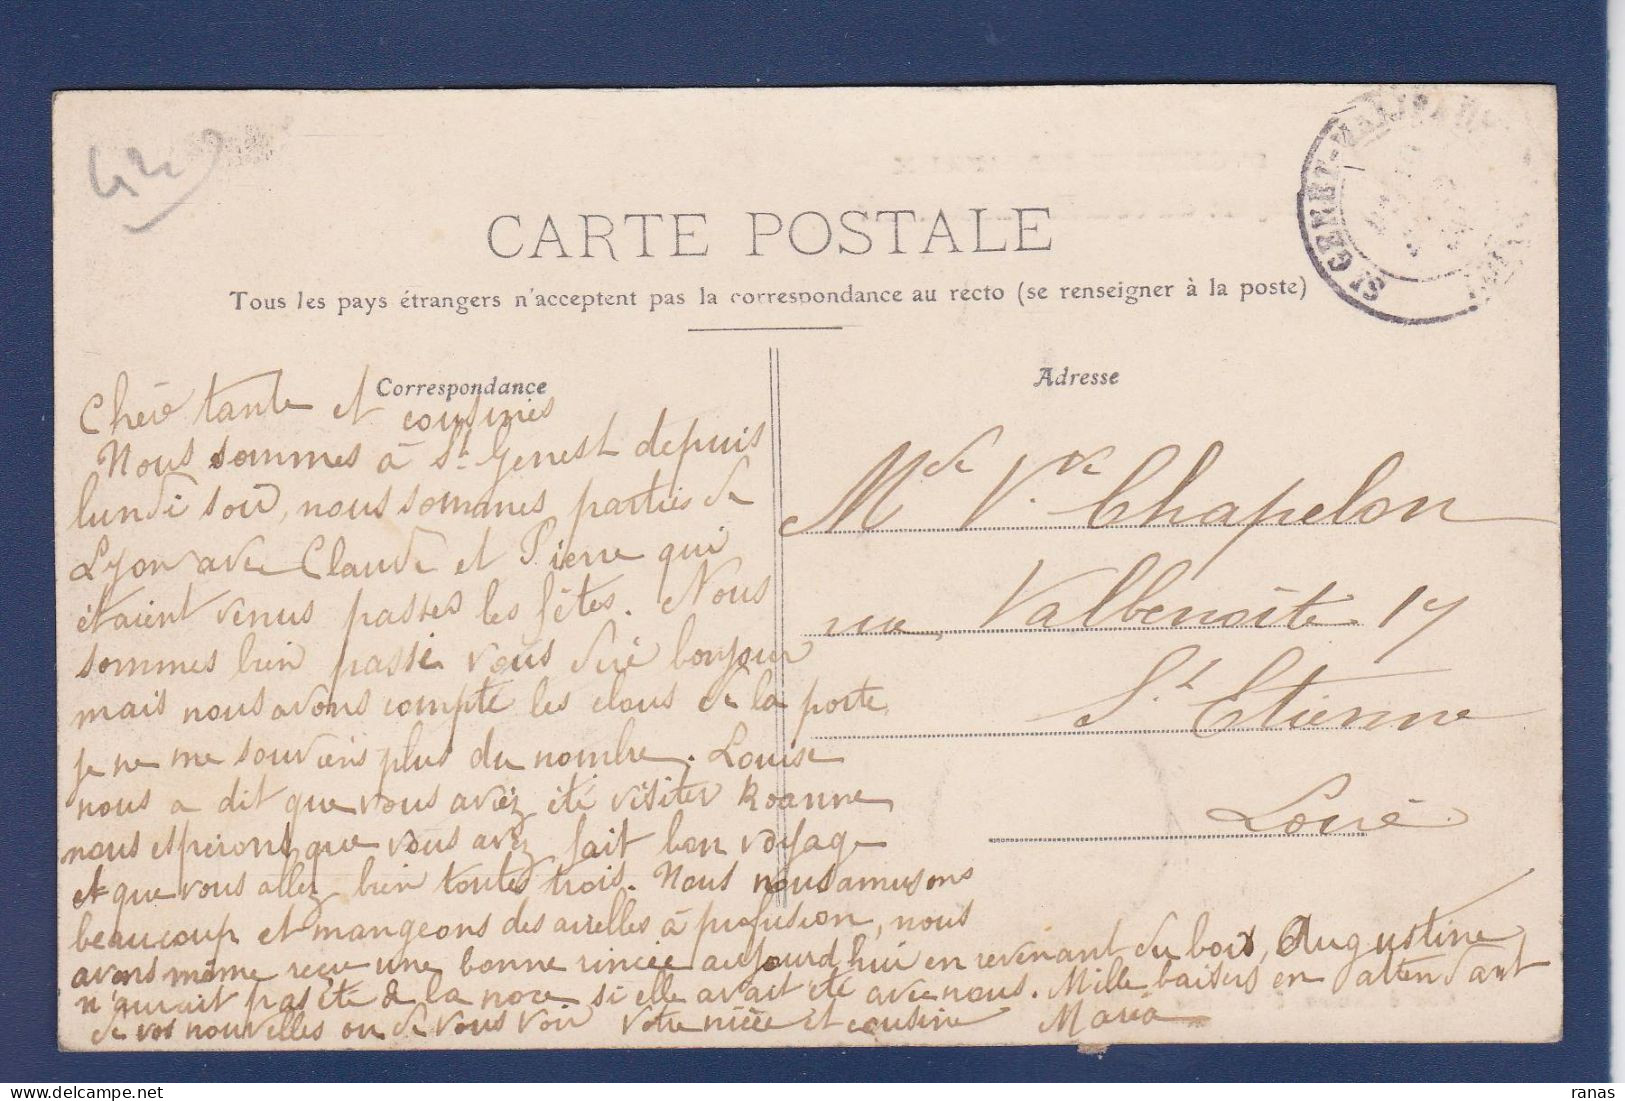 CARTE POSTALE
Tous les pays étrangers n'acceptent pas la correspondance au recto (se renseigner à la poste)
Correspondance
Chère tante et cousines
Nous sommes à St Genest depuis
lundi soir, nous sommes parties de
Lyon avec Claude et Pierre qui
étaient venus passer les fêtes. Nous
sommes bien passé vous dire bonjour
mais nous avons compté les clous de la porte
je ne me souviens plus du nombre. Louise
nous a dit que vous aviez été visiter Roanne
nous espérons que vous avez fait bon voyage
et que vous allez bien toutes trois. Nous nous amusons
beaucoup et mangeons des airelles à profusion, nous
avons même reçu une bonne rincée aujourd'hui en revenant du bois, Augustine
n'aurait pas été de la noce si elle avait été avec nous. Mille baisers en attendant
de vos nouvelles ou de vous voir votre nièce et cousine Maria
Adresse
Mde Vve Chapelon
rue Valbenoîte 17
St Etienne
Loire
ST GENEST-MALIFAUX
42
ranas